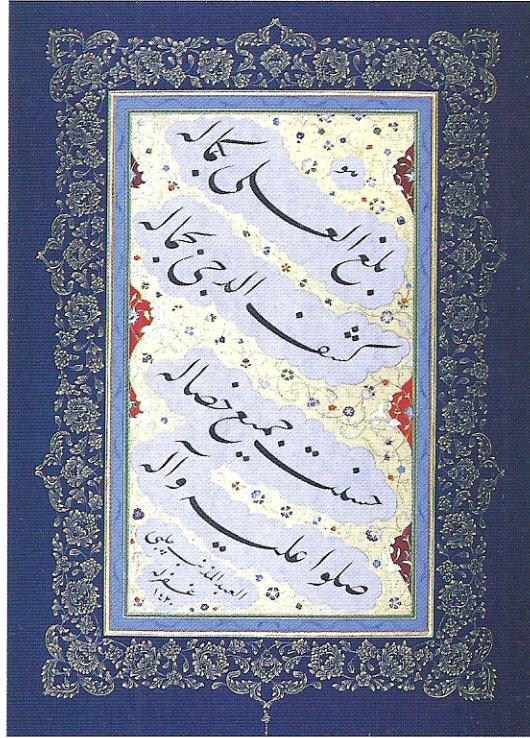 هو
بلغ العلی بکماله
کشف الدجی بجماله
حسنت جمیع خصاله
صلوا علیه وآله
العبد المذنب چلیپی
غفرله